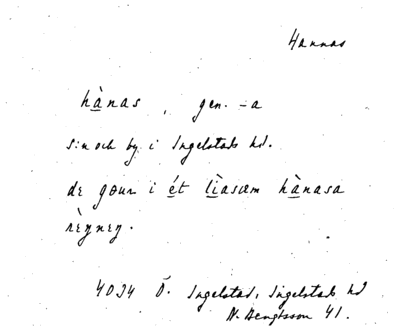 Hannas
hànas, gen. -a
sn och by i Ingelstads hd.
de gour i ét lìasam hànasa
rèyney.
4034 Ö. Ingelstad, Ingelstads hd
N. Bengtsson 41.